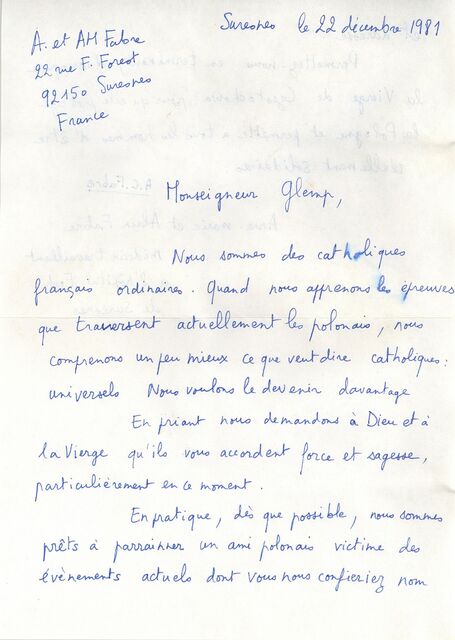 Suresnes le 22 décembre 1981
A. et AM Fabre
22 rue F. Forest
92150 Suresnes
France
Monseigneur Glemp,
Nous sommes des catholiques
français ordinaires. Quand nous apprenons les épreuves
que traversent actuellement les polonais, nous
comprenons un peu mieux ce que veut dire catholiques :
universels Nous voulons le devenir davantage
En priant nous demandons à Dieu et à
la Vierge qu'ils vous accordent force et sagesse,
particulièrement en ce moment.
En pratique, dès que possible, nous sommes
prêts à parrainner un ami polonais victime des
évènements actuels dont vous nous confieriez nom